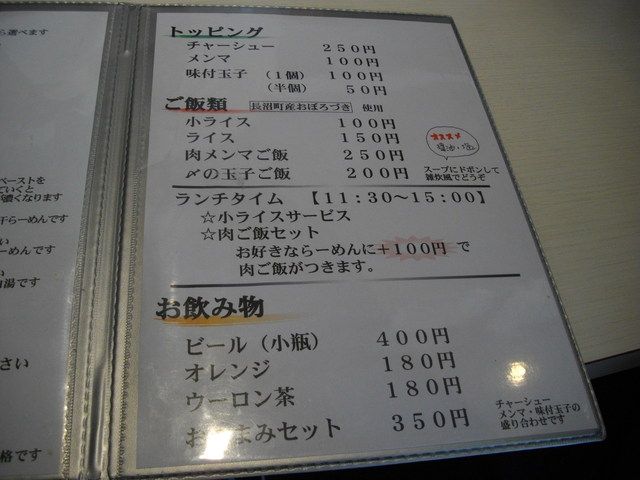 ら選べます
ペーストを
ていくと
が濃くなります
干らーめんです
い
らーめんです
い
油湯です
さい
格です
トッピング
チャーシュー 250円
メンマ 100円
味付玉子 (1個) 100円
(半個) 50円
ご飯類 長沼町産おぼろづき 使用
小ライス 100円
ライス 150円
肉メンマご飯 250円
〆の玉子ご飯 200円
オススメ
スープにドボンして
雑炊風でどうぞ
ランチタイム 【11:30～15:00】
☆小ライスサービス
☆肉ご飯セット
お好きならーめんに+100円で
肉ご飯がつきます。
お飲み物
ビール(小瓶) 400円
オレンジ 180円
ウーロン茶 180円
おつまみセット 350円
チャーシュー
メンマ・味付玉子の
盛り合わせです